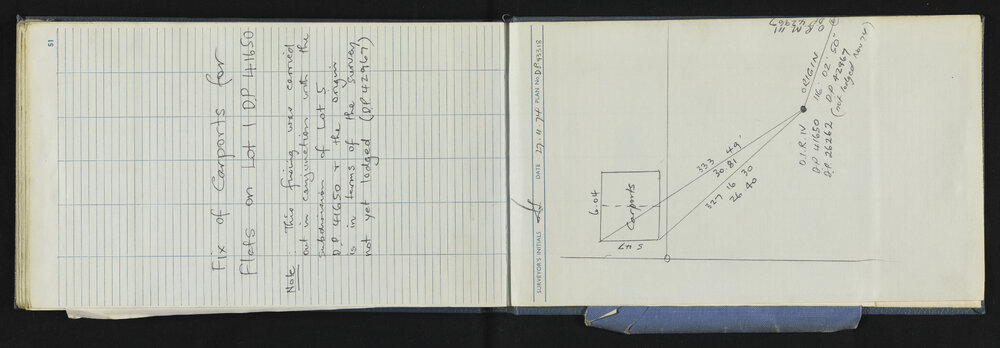 51
Fix of Carports for
Flats on Lot 1 DP 41650
Note: This fixing was carried
out in conjunction with the
Subdivision of Lot 5
DP 41650 & the origin
is in terms of the survey
not yet lodged (DP 42967)
SURVEYOR'S INITIALS
DATE 27.11.74 PLAN No. D.P. 93318
6.04
Carports
5.47
333 49
30.81
327 16 30
26.40
O.I.R. IV
D.P. 41650
D.P. 26262
ORIGIN
116° 02' 50"
D.P. 42967
(not lodged Nov 74)
O.R.M. III
DP 42967